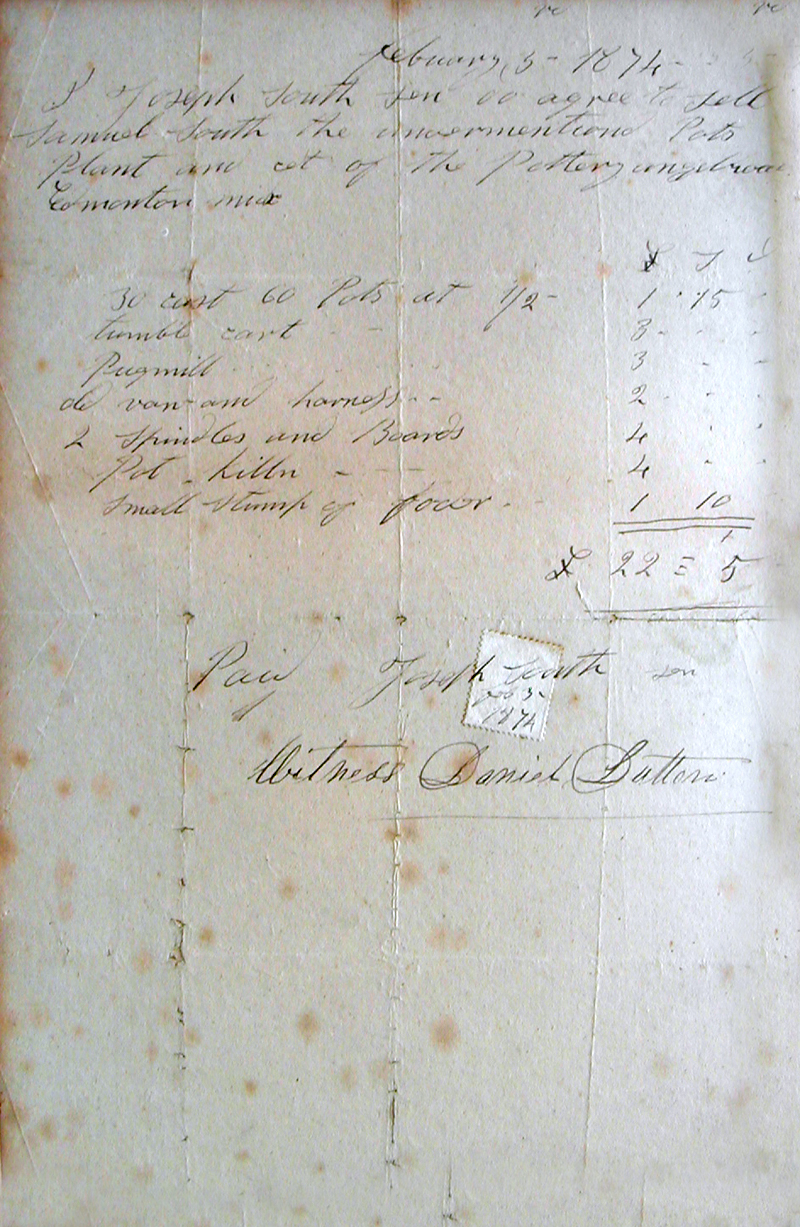 February 3 - 1874 -
I Joseph South sen do agree to sell
Samuel South the undermentiond Pots
Plant and ct of the Pottery
Edmonton midx
£ s d
30 cast 60 Pots at 1/2 - 1 . 15 .
tumbl cart - - 3 - . -
Pugmill 3 . -
van and harness - - 2 . .
2 Spindles and Boards 4 . .
Pot - killn - - 4 . .
Small Stump of 1 10
£ 22 = 5
Paid Joseph South sen
feb 3 -
1874
Witness Daniel Button